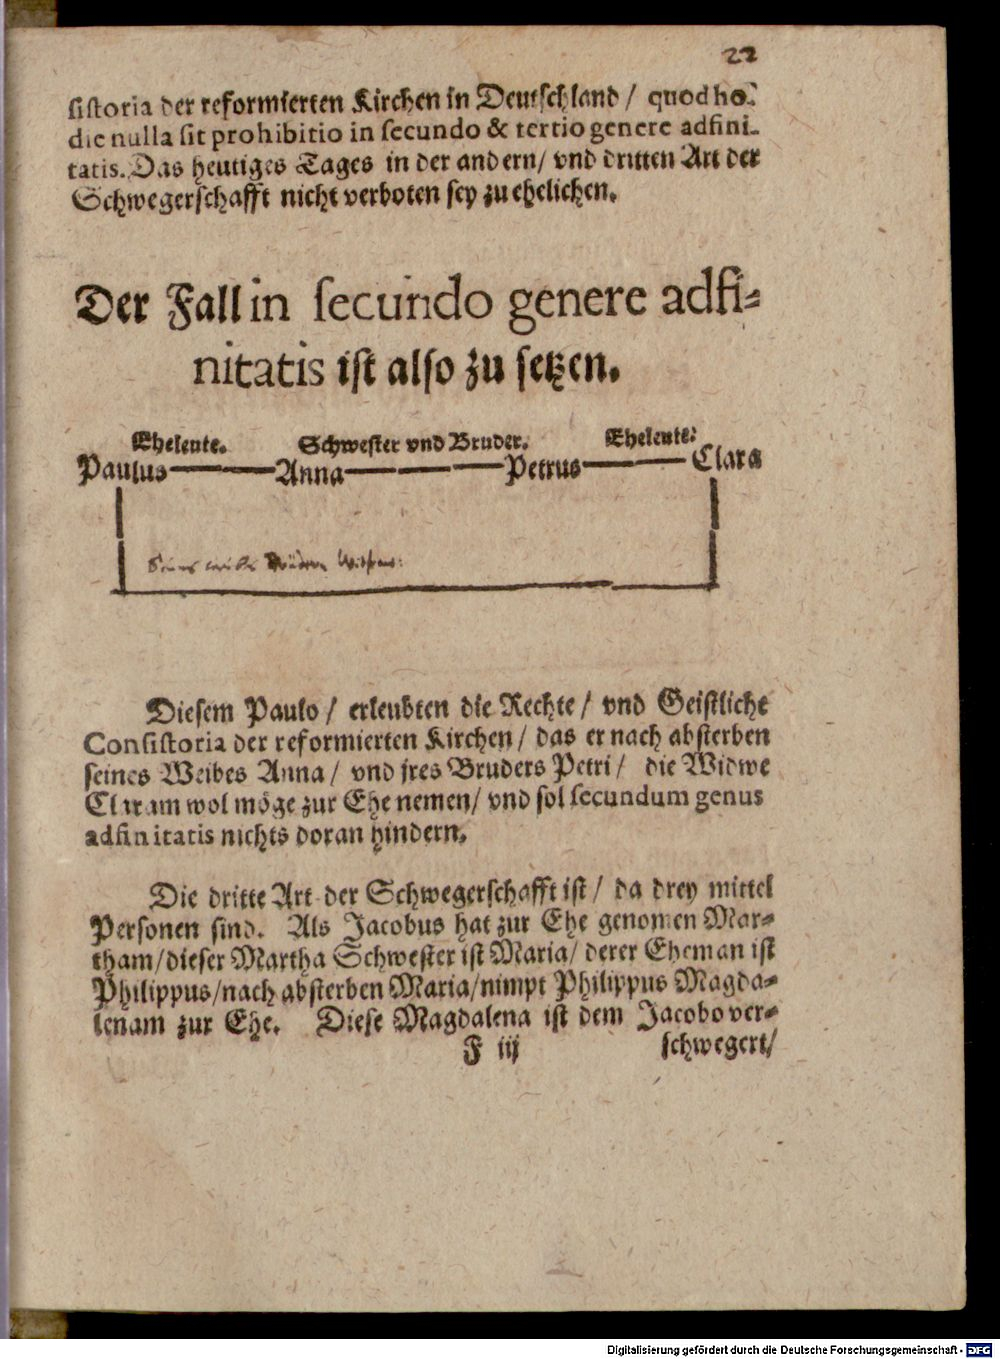 22
sistoria der reformierten Kirchen in Deutschland / quod ho-
die nulla sit prohibitio in secundo & tertio genere adfini-
tatis. Das heutiges Tages in der andern / vnd dritten Art der
Schwegerschafft nicht verboten sey zu ehelichen.
Der Fall in secundo genere adfi-
nitatis ist also zu setzen.
Eheleute. Schwester vnd Bruder. Eheleute.
Paulus Anna Petrus Clara
Seines weibs Bruders Witfraw:
Diesem Paulo / erleubten die Rechte / vnd Geistliche
Consistoria der reformierten Kirchen / das er nach absterben
seines Weibes Anna / vnd jres Bruders Petri / die Widwe
Claram wol möge zur Ehe nemen / vnd sol secundum genus
adfinitatis nichts doran hindern.
Die dritte Art der Schwegerschafft ist / da drey mittel
Personen sind. Als Jacobus hat zur Ehe genomen Mar-
tham / dieser Martha Schwester ist Maria / derer Eheman ist
Philippus / nach absterben Maria / nimpt Philippus Magda-
lenam zur Ehe. Diese Magdalena ist dem Jacobo ver-
F iij schwegert /
Digitalisierung gefördert durch die Deutsche Forschungsgemeinschaft - DFG